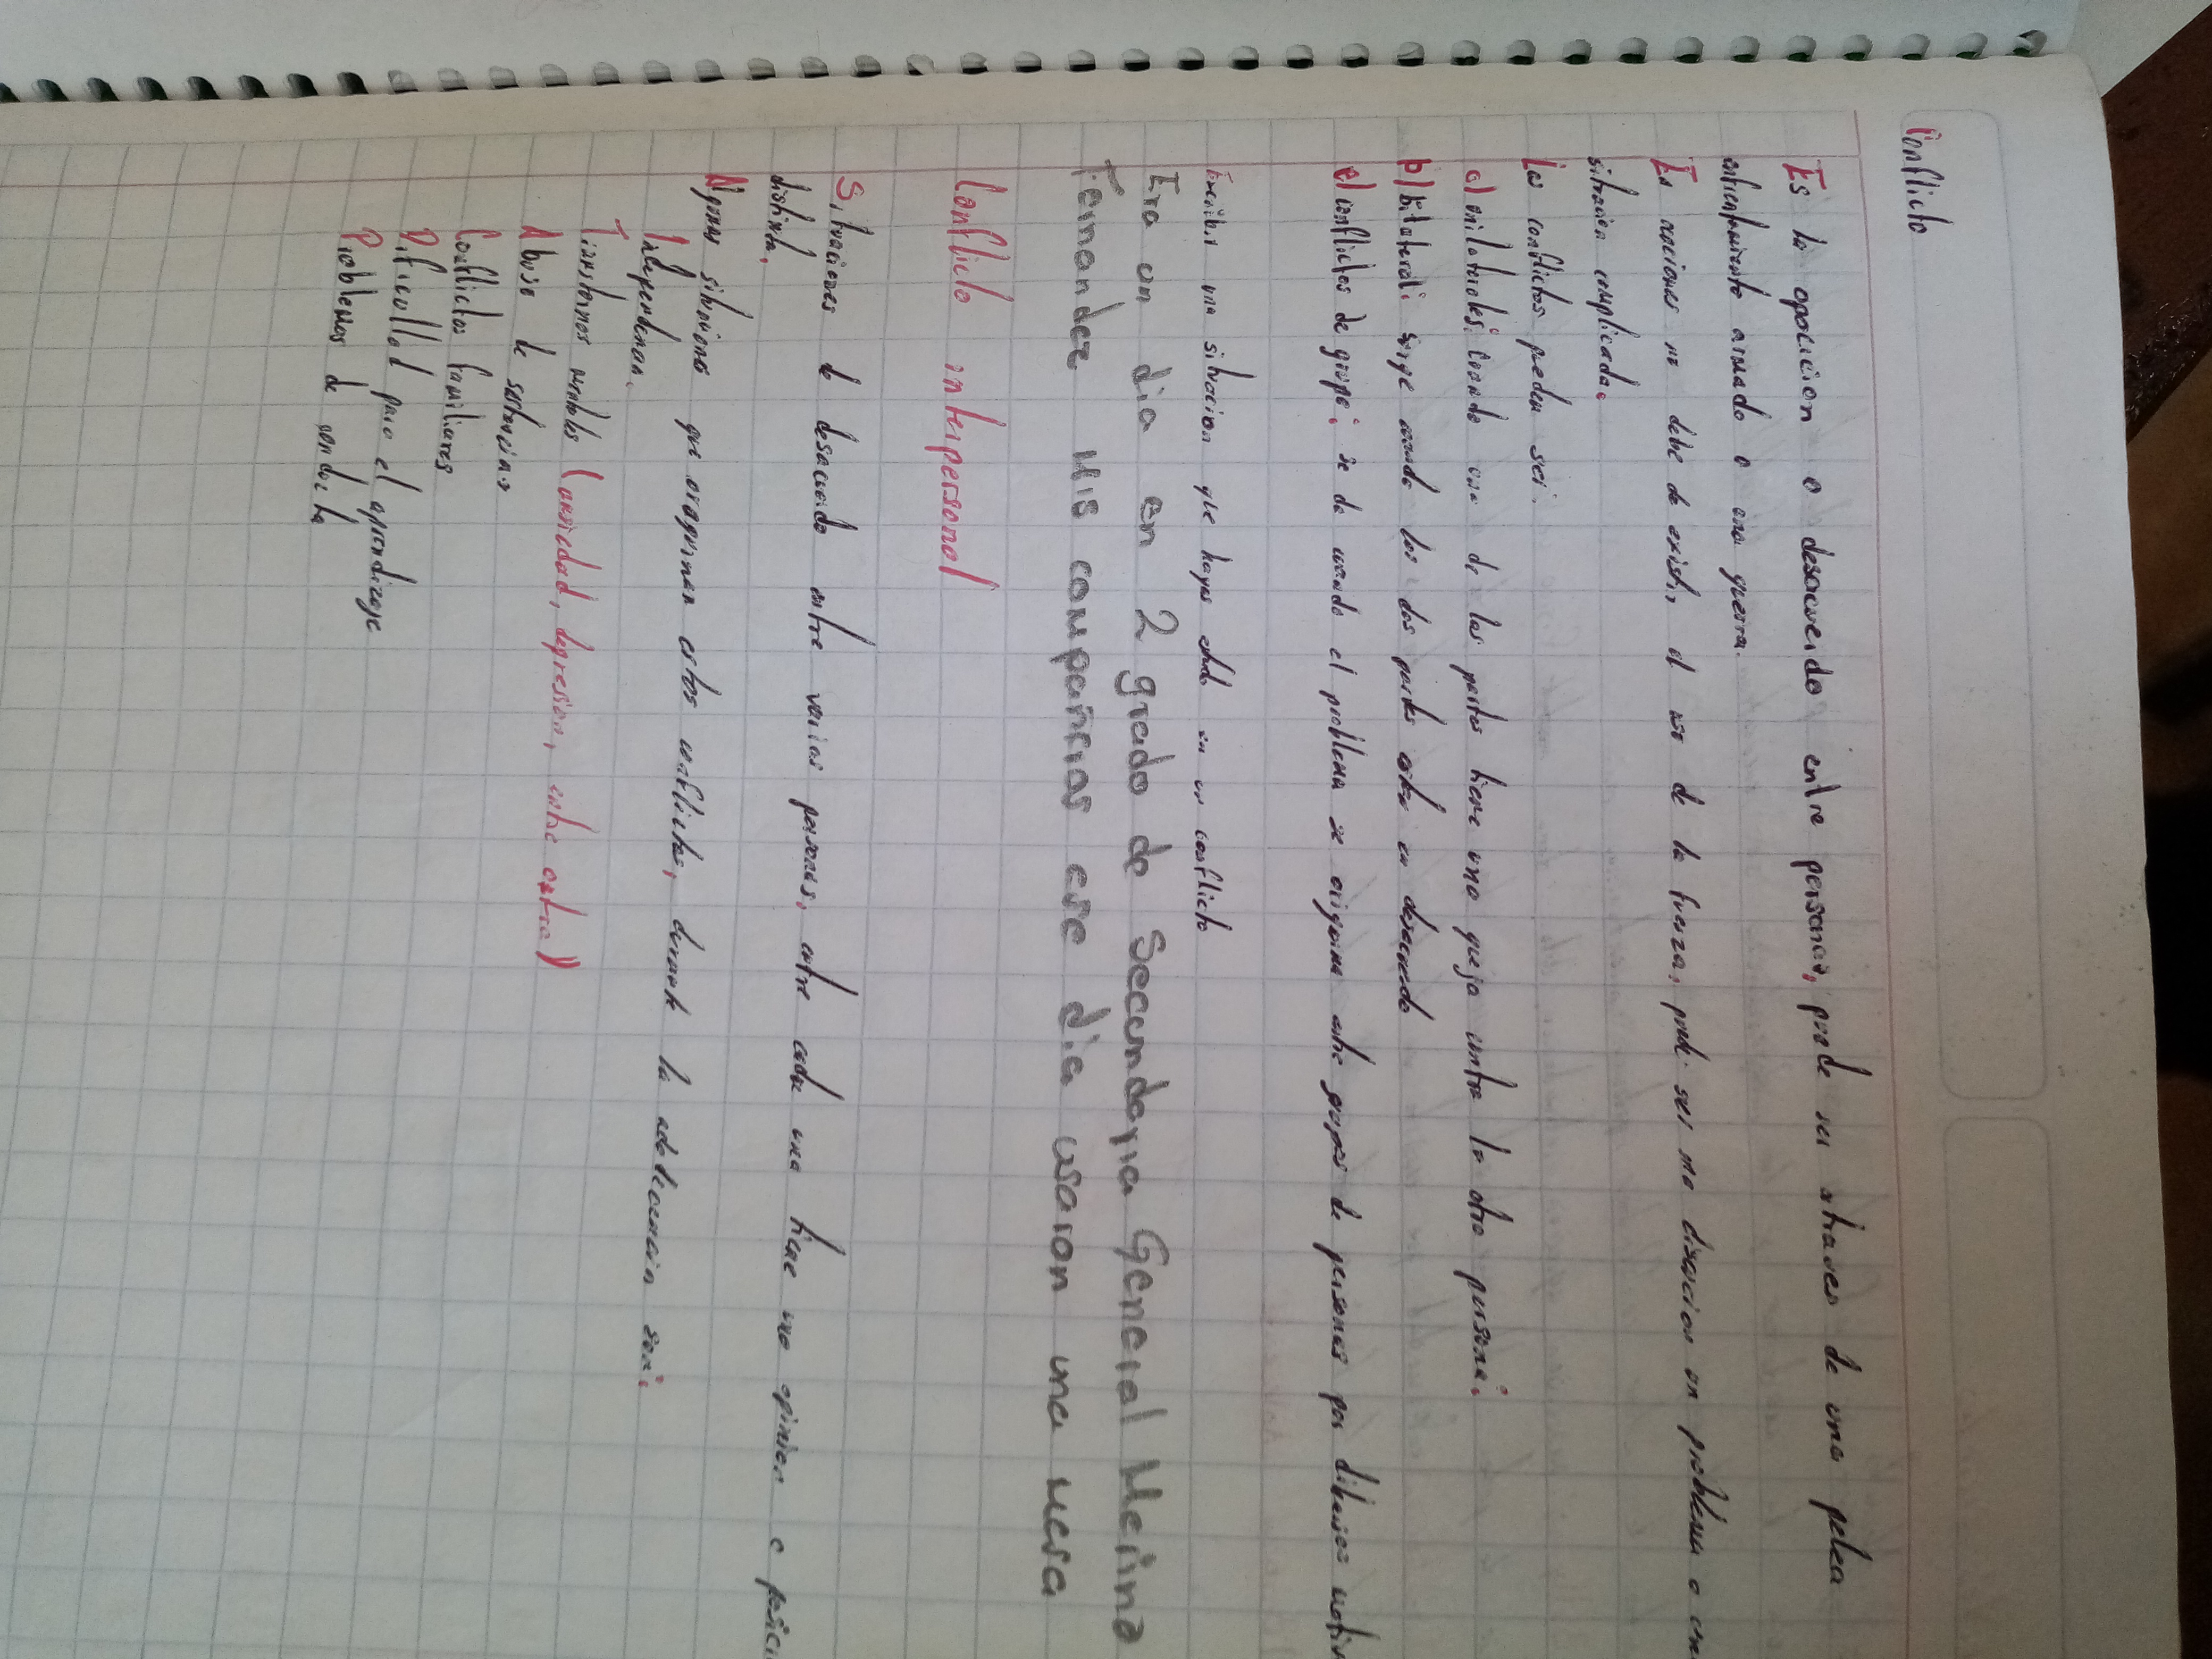 Conflicto
Es la oposicion o desacuerdo entre personas, puede ser atraves de una pelea
enfrentamiento armado o una guerra.
En naciones no debe de existir el uso de la fuerza, puede ser una discucion un problema o una
situacion complicada.
Los conflictos pueden ser:
a) unilaterales: Cuando una de las partes tiene una queja contra la otra persona.
b) bilateral: surge cuando las dos partes estan en desacuerdo
c) conflictos de grupo: se da cuando el problema se origina entre grupos de personas por
Escribir una situacion que hayas estado en un conflicto
Era un dia en 2 grado de Secundaria General Merina
Fernandez mis compañeros ese dia usaron una mesa
Conflicto interpersonal
Situaciones de desacuerdo entre varias personas, entre cada una tiene una opinion o
distinta.
Algunas situaciones que oraginan estos conflictos, durante la adolecencia son:
Independencia.
Transtornos mentales (ansiedad, depresion, entre otras)
Abuso de sustancias
Conflictos familiares
Dificultad para el aprendizaje
Problemas de conducta